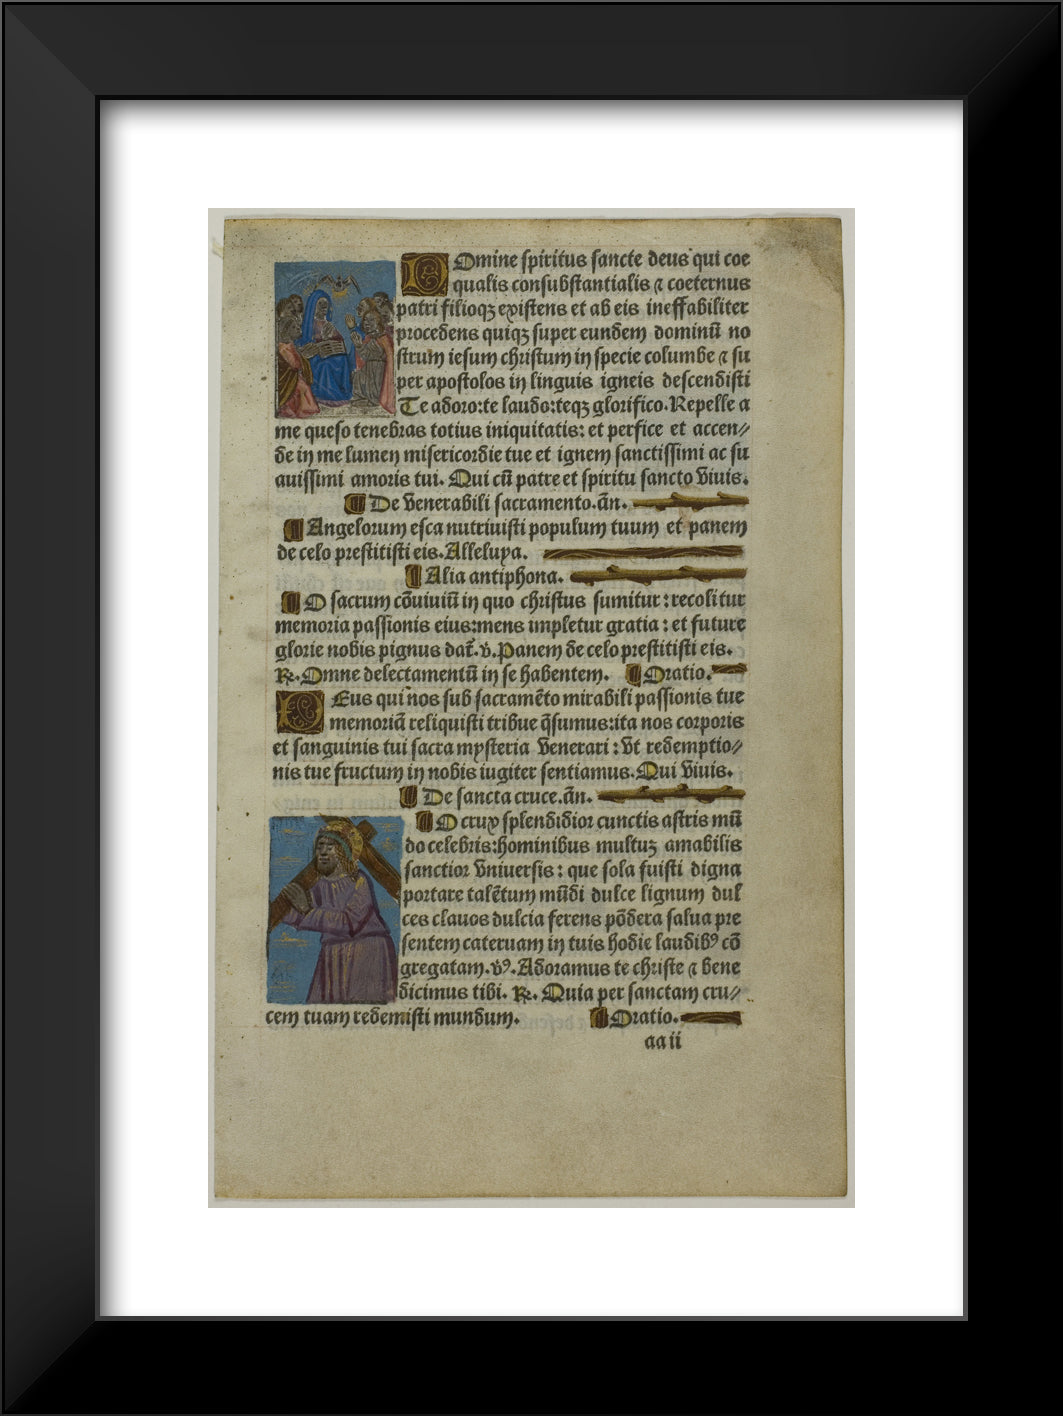 Domine spiritus sancte deus qui coe
qualis consubstantialis ⁊ coeternus
patri filioqꝫ existens et ab eis ineffabiliter
procedens quiqꝫ super eundem dominū no
strum iesum christum in specie columbe ⁊ su
per apostolos in linguis igneis descendisti
Te adoro:te laudo:teqꝫ glorifico.Repelle a
me queso tenebras totius iniquitatis: et perfice et accen⸗
de in me lumen misericordie tue et ignem sanctissimi ac su
auissimi amoris tui. Qui cū patre et spiritu sancto viuis.
¶ De venerabili sacramento.añ.
¶ Angelorum esca nutriuisti populum tuum et panem
de celo prestitisti eis.Alleluya.
¶ Alia antiphona.
¶ O sacrum cōuiuiū in quo christus sumitur:recolitur
memoria passionis eius:mens impletur gratia: et future
glorie nobis pignus dat̄.℣.Panem de celo prestitisti eis.
℟.Omne delectamentū in se habentem. ¶ Oratio.
DEus qui nos sub sacramēto mirabili passionis tue
memoriā reliquisti tribue q̄sumus:ita nos corporis
et sanguinis tui sacra mysteria venerari: vt redemptio⸗
nis tue fructum in nobis iugiter sentiamus.Qui viuis.
¶ De sancta cruce.añ.
¶ O crux splendidior cunctis astris mū
do celebris:hominibus multuꝫ amabilis
sanctior vniuersis: que sola fuisti digna
portare talētum mūdi dulce lignum dul
ces clauos dulcia ferens pōdera salua pre
sentem cateruam in tuis hodie laudibꝰ cō
gregatam.v̄ꝰ.Adoramus te christe ⁊ bene
dicimus tibi. ℟. Quia per sanctam cru⸗
cem tuam redemisti mundum. ¶ Oratio.
aa ii